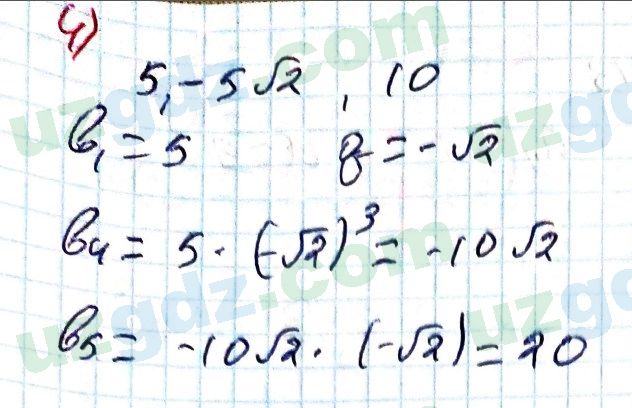 4)
5, -5√2, 10
b₁ = 5 q = -√2
b₄ = 5 · (-√2)³ = -10√2
b₅ = -10√2 · (-√2) = 20
uzgdz.com